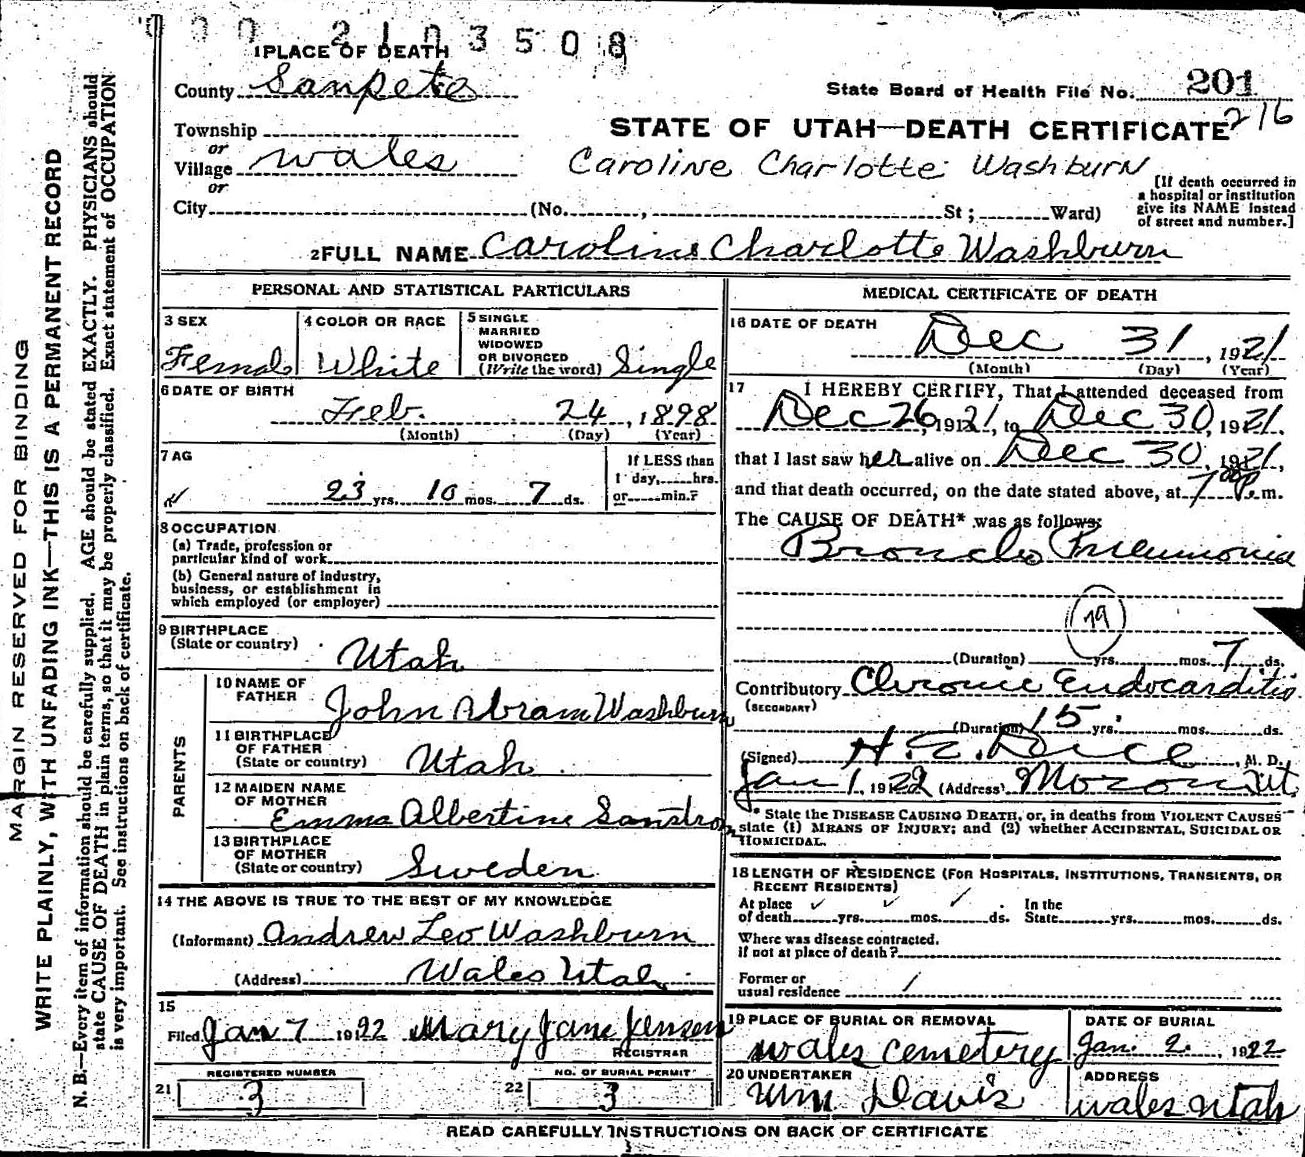 000 2103508
1 PLACE OF DEATH
County Sanpete
State Board of Health File No. 201
216
Township
or
Village Wales
or
City (No. , St; Ward)
STATE OF UTAH—DEATH CERTIFICATE
Caroline Charlotte Washburn
[If death occurred in
a hospital or institution
give its NAME instead
of street and number.]
2 FULL NAME Caroline Charlotte Washburn
PERSONAL AND STATISTICAL PARTICULARS
3 SEX
Female
4 COLOR OR RACE
White
5 SINGLE
MARRIED
WIDOWED
OR DIVORCED
(Write the word) Single
6 DATE OF BIRTH
Feb. 24, 1898
(Month) (Day) (Year)
7 AG
23 yrs. 10 mos. 7 ds.
If LESS than
1 day, hrs.
or min.?
8 OCCUPATION
(a) Trade, profession or
particular kind of work
(b) General nature of industry,
business, or establishment in
which employed (or employer)
9 BIRTHPLACE
(State or country)
Utah
PARENTS
10 NAME OF
FATHER
John Abram Washburn
11 BIRTHPLACE
OF FATHER
(State or country) Utah
12 MAIDEN NAME
OF MOTHER
Emma Albertine Sanstrom
13 BIRTHPLACE
OF MOTHER
(State or country) Sweden
14 THE ABOVE IS TRUE TO THE BEST OF MY KNOWLEDGE
(Informant) Andrew Leo Washburn
(Address) Wales Utah
15
Filed Jan 7 1922 Mary Jane Jensen
REGISTRAR
21 REGISTERED NUMBER
3
22 NO. OF BURIAL PERMIT
3
MEDICAL CERTIFICATE OF DEATH
16 DATE OF DEATH
Dec 31, 1921
(Month) (Day) (Year)
17 I HEREBY CERTIFY, That I attended deceased from
Dec 26, 1921, to Dec 30, 1921,
that I last saw her alive on Dec 30, 1921,
and that death occurred, on the date stated above, at 7 00 P. m.
The CAUSE OF DEATH* was as follows:
Broncho Pneumonia
79
(Duration) yrs. mos. 7 ds.
Contributory Chronic Endocarditis
(SECONDARY)
(Duration) 15 yrs. mos. ds.
(Signed) H. E. Dice, M. D.
Jan 1, 1922 (Address) Moroni Ut
* State the DISEASE CAUSING DEATH, or, in deaths from VIOLENT CAUSES
state (1) MEANS OF INJURY; and (2) whether ACCIDENTAL, SUICIDAL OR
HOMICIDAL.
18 LENGTH OF RESIDENCE (FOR HOSPITALS, INSTITUTIONS, TRANSIENTS, OR
RECENT RESIDENTS)
At place In the
of death yrs. mos. ds. State yrs. mos. ds.
Where was disease contracted,
if not at place of death?
Former or
usual residence
19 PLACE OF BURIAL OR REMOVAL
Wales Cemetery
DATE OF BURIAL
Jan. 2, 1922
20 UNDERTAKER
Wm Davis
ADDRESS
Wales Utah
READ CAREFULLY INSTRUCTIONS ON BACK OF CERTIFICATE
MARGIN RESERVED FOR BINDING
WRITE PLAINLY, WITH UNFADING INK—THIS IS A PERMANENT RECORD
N. B.—Every item of information should be carefully supplied. AGE should be stated EXACTLY. PHYSICIANS should
state CAUSE OF DEATH in plain terms, so that it may be properly classified. Exact statement of OCCUPATION
is very important. See instructions on back of certificate.